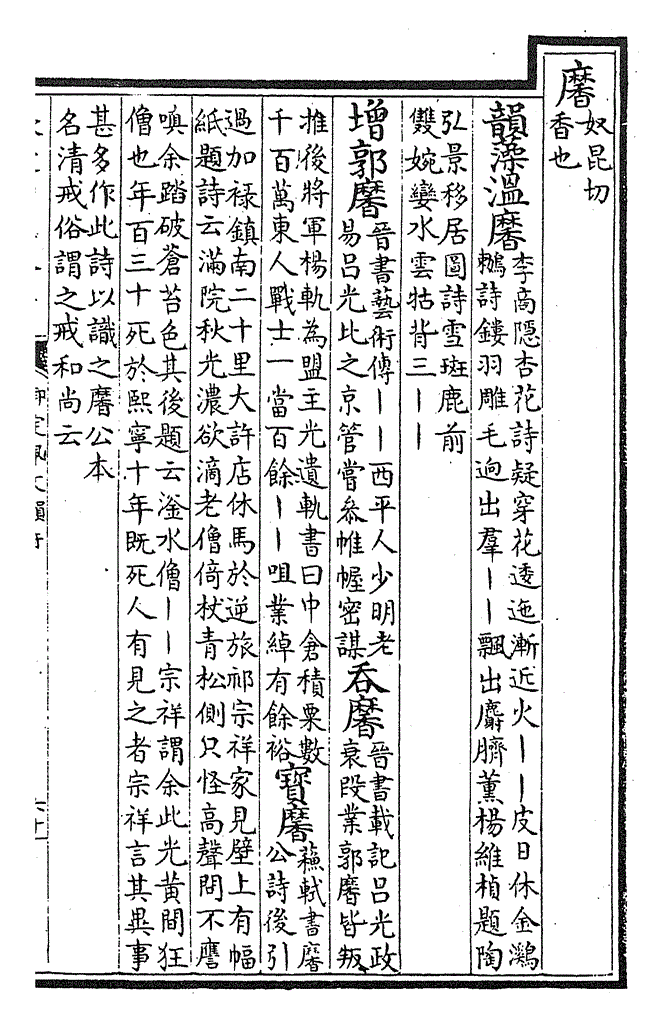 黁奴昆切
香也
韻藻溫黁李商隱杏花詩疑穿花逶迤漸近火丨丨皮日休金鸂
鶒詩鏤羽雕毛逈出羣丨丨飄出麝臍薰楊維楨題陶
弘景移居圖詩雪斑鹿前
雙婉孌水雲牯背三丨丨
增郭黁晉書藝術傳丨丨西平人少明老
易呂光比之京管嘗叅帷幄密謀
吞黁晉書載記呂光政
衰段業郭黁皆叛
推後將軍楊軌為盟主光遺軌書曰中倉積粟數
千百萬東人戰士一當百餘丨丨咀業綽有餘裕
寶黁蘇軾書黁
公詩後引
過加祿鎮南二十里大許店休馬於逆旅祁宗祥家見壁上有幅
紙題詩云滿院秋光濃欲滴老僧倚杖青松側只怪高聲問不譍
嗔余踏破蒼苔色其後題云滏水僧丨丨宗祥謂余此光黃間狂
僧也年百三十死於熙寧十年既死人有見之者宗祥言其異事
甚多作此詩以識之黁公本
名清戒俗謂之戒和尚云